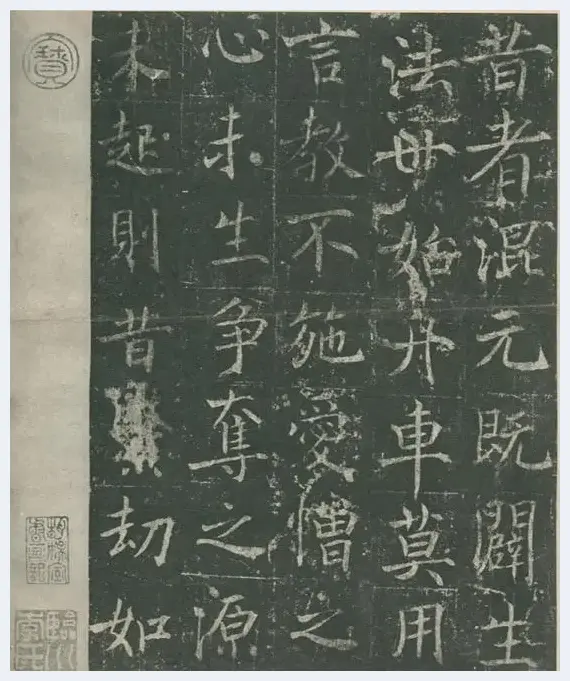 昔者混元既闢生
法毋始舟車莫用
言教不施愛憎之
心未生争奪之源
未起則昔劫如
臨川李氏